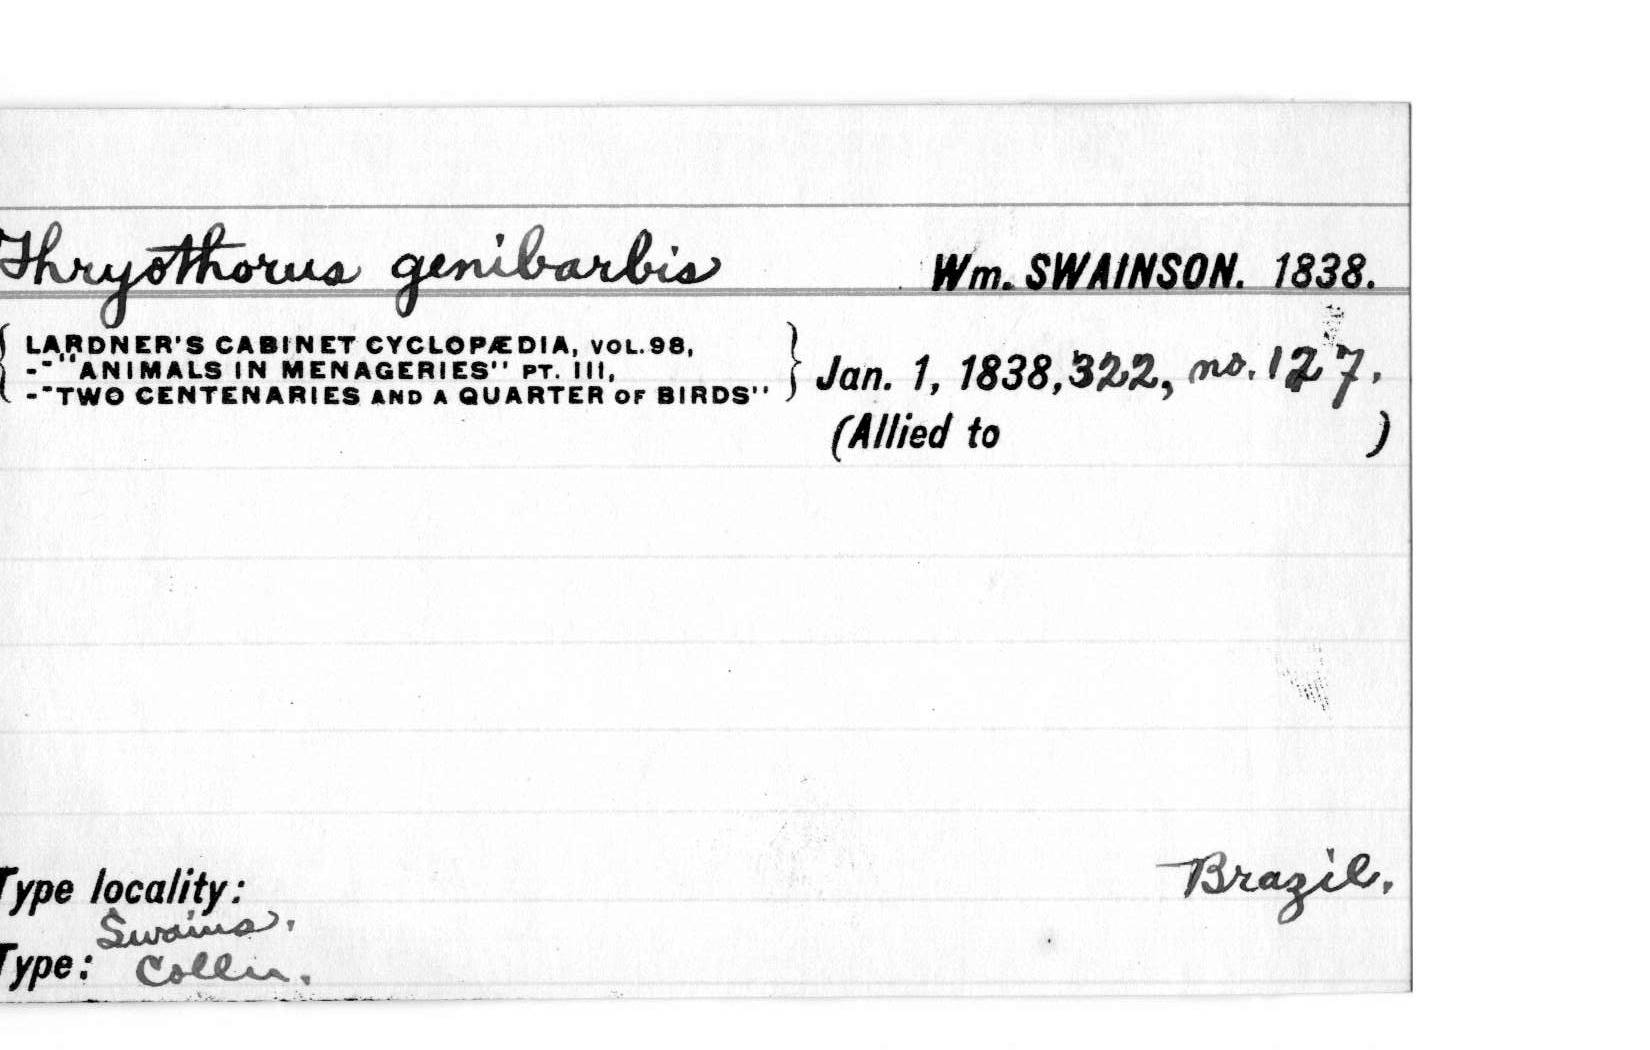 Thryothorus genibarbis Wm. SWAINSON. 1838.
LARDNER'S CABINET CYCLOPÆDIA, VOL. 98,
-"-"ANIMALS IN MENAGERIES" PT. III,
-"TWO CENTENARIES AND A QUARTER OF BIRDS"
Jan. 1, 1838, 322, no. 127.
(Allied to )
Type locality: Brazil.
Swains.
Type: Colln.